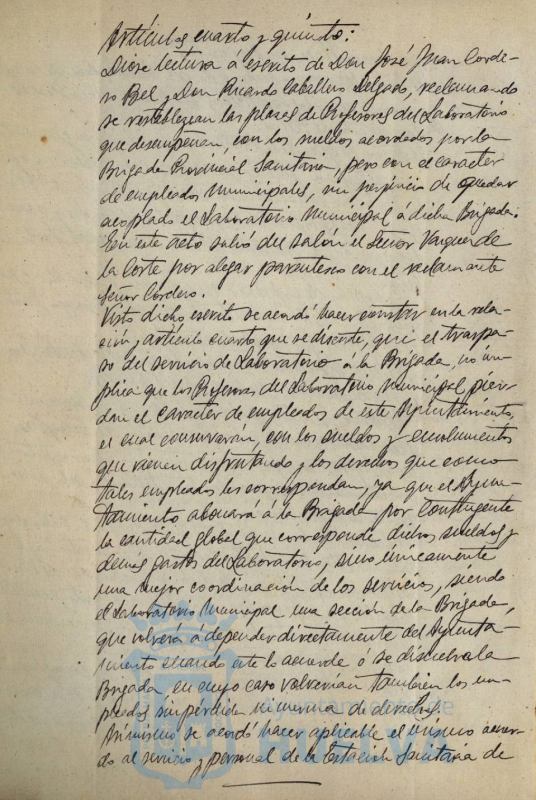 Artículos cuarto y quinto:
Diose lectura á escrito de Don José Juan Corde-
ro Bel y Don Ricardo Caballero Delgado, reclamando
se restablezcan las plazas de Profesores del Laboratorio
que desempeñan, con los sueldos acordados por la
Brigada Provincial Sanitaria, pero con el caracter
de empleados municipales, sin perjuicio de quedar
acoplado el Laboratorio Municipal á dicha Brigada.
En este acto salió del salón el Señor Vazquez de
la Corte por alegar parentesco con el reclamante
Señor Cordero.
Visto dicho escrito se acordó hacer constar en la rela-
ción y artículo cuarto que se discute, que el traspa-
so del servicio de Laboratorio á la Brigada, no im-
plica que los Profesores del Laboratorio Municipal pier-
dan el caracter de empleados de este Ayuntamiento,
el cual conservarán, con los sueldos y emolumentos
que vienen disfrutando y los derechos que como
tales empleados les correspondan, ya que el Ayun-
tamiento abonará á la Brigada por contingente
la cantidad global que corresponde dichos sueldos y
demas gastos del Laboratorio, sino únicamente
una mejor coordinación de los servicios, siendo
el Laboratorio Municipal una sección de la Brigada,
que volverá á depender directamente del Ayunta-
miento cuando este lo acuerde ó se disuelva la
Brigada, en cuyo caso volverían también los em-
pleados sin pérdida ni merma de derechos.
Asimismo se acordó hacer aplicable el mismo acuer-
do al servicio y personal de la Estación Sanitaria de